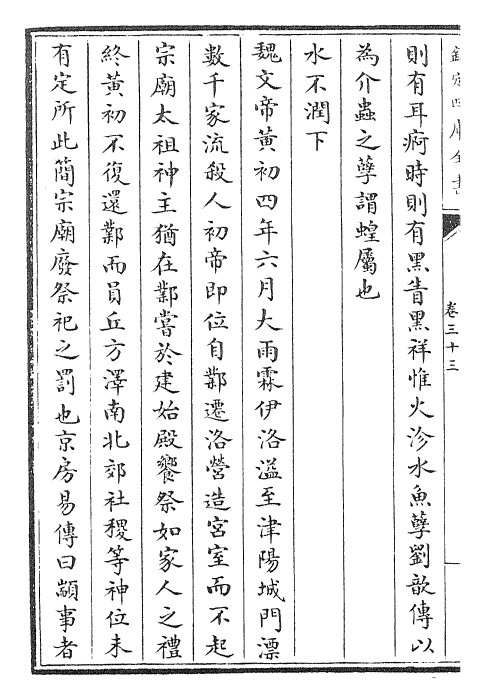 欽定四庫全書
卷三十三
則有耳痾時則有黑眚黑祥惟火沴水魚孽劉歆傳以
為介蟲之孽謂蝗屬也
水不潤下
魏文帝黃初四年六月大雨霖伊洛溢至津陽城門漂
數千家流殺人初帝即位自鄴遷洛營造宮室而不起
宗廟太祖神主猶在鄴嘗於建始殿饗祭如家人之禮
終黃初不復還鄴而員丘方澤南北郊社稷等神位未
有定所此簡宗廟廢祭祀之罰也京房易傳曰顓事者